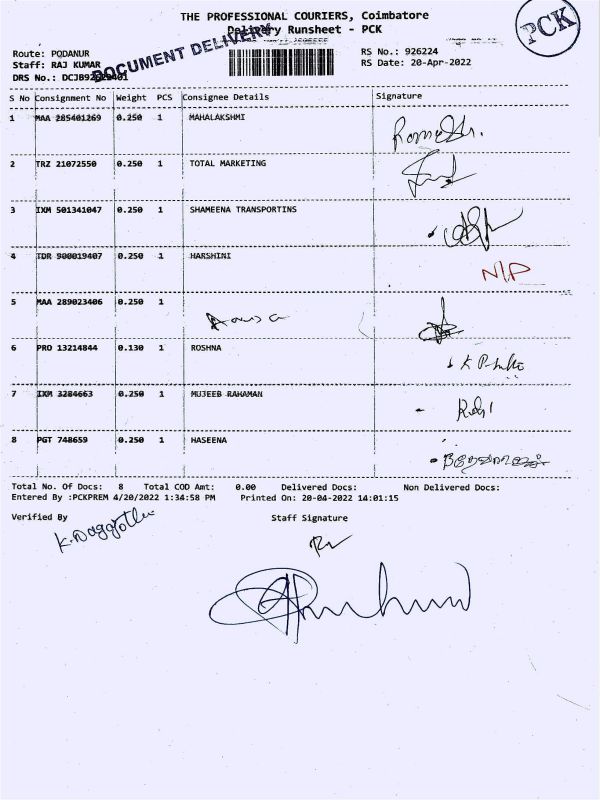 THE PROFESSIONAL COURIERS, Coimbatore
Delivery Runsheet - PCK
PCK
DOCUMENT DELIVERY
Route: PODANUR
RS No.: 926224
Staff: RAJ KUMAR
RS Date: 20-Apr-2022
DRS No.:
S No Consignment No Weight PCS Consignee Details Signature
1 MAA 285401269 0.250 1 MAHALAKSHMI
2 TRZ 21072550 0.250 1 TOTAL MARKETING
3 IXM 501341047 0.250 1 SHAMEENA TRANSPORTINS
4 TDR 900019407 0.250 1 HARSHINI N/D
5 MAA 289023406 0.250 1
6 PRO 13214844 0.130 1 ROSHNA
7 IXM 3284663 0.250 1 MUJEEB RAHAMAN
8 PGT 748659 0.250 1 HASEENA
Total No. Of Docs: 8 Total COD Amt: 0.00 Delivered Docs: Non Delivered Docs:
Entered By :PCKPREM 4/20/2022 1:34:58 PM Printed On: 20-04-2022 14:01:15
Verified By Staff Signature